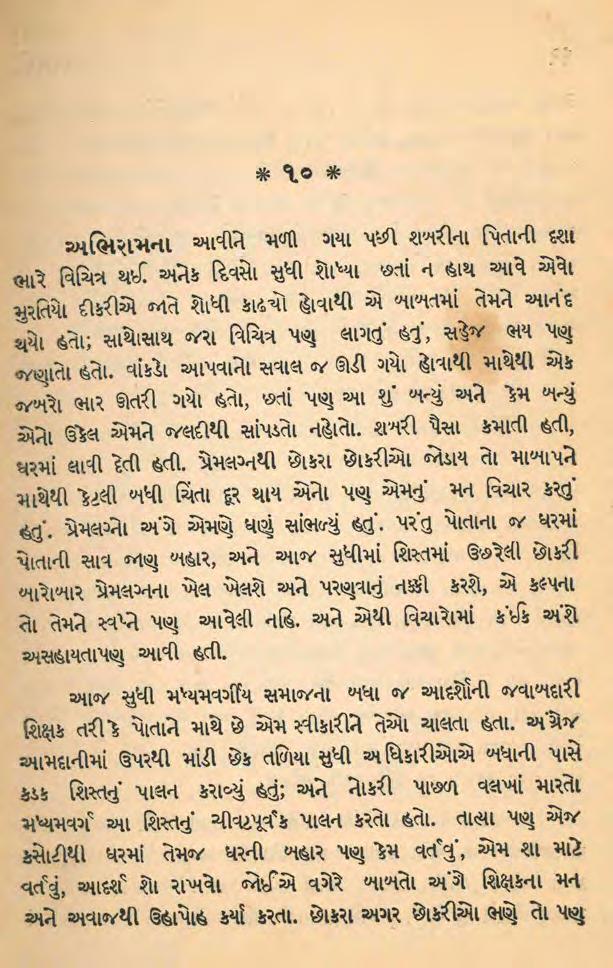 * ૧૦ *
અભિરામના આવીને મળી ગયા પછી શબરીના પિતાની દશા
ભારે વિચિત્ર થઈ. અનેક દિવસો સુધી શોધ્યા છતાં ન હાથ આવે એવો
મુરતિયો દીકરીએ જાતે શોધી કાઢ્યો હોવાથી એ બાબતમાં તેમને આનંદ
થયો હતો; સાથોસાથ જરા વિચિત્ર પણ લાગતું હતું, સહેજ ભય પણ
જણાતો હતો. વાંકડો આપવાનો સવાલ જ ઊડી ગયો હોવાથી માથેથી એક
જબરો ભાર ઊતરી ગયો હતો, છતાં પણ આ શું બન્યું અને કેમ બન્યું
એનો ઉકેલ એમને જલદીથી સાંપડતો નહોતો. શબરી પૈસા કમાતી હતી,
ઘરમાં લાવી દેતી હતી. પ્રેમલગ્નથી છોકરા છોકરીઓ જોડાય તો માબાપને
માથેથી કેટલી બધી ચિંતા દૂર થાય એનો પણ એમનું મન વિચાર કરતું
હતું. પ્રેમલગ્નો અંગે એમણે ઘણું સાંભળ્યું હતું. પરંતુ પોતાના જ ઘરમાં
પોતાની સાવ જાણ બહાર, અને આજ સુધીમાં શિસ્તમાં ઉછરેલી છોકરી
બારોબાર પ્રેમલગ્નના ખેલ ખેલશે અને પરણવાનું નક્કી કરશે, એ કલ્પના
તો તેમને સ્વપ્ને પણ આવેલી નહિ. અને એથી વિચારોમાં કંઈક અંશે
અસહાયતાપણ આવી હતી.
આજ સુધી મધ્યમવર્ગીય સમાજના બધા જ આદર્શોની જવાબદારી
શિક્ષક તરીકે પોતાને માથે છે એમ સ્વીકારીને તેઓ ચાલતા હતા. અંગ્રેજ
આમદાનીમાં ઉપરથી માંડી છેક તળિયા સુધી અધિકારીઓએ બધાની પાસે
કડક શિસ્તનું પાલન કરાવ્યું હતું; અને નોકરી પાછળ વલખાં મારતો
મધ્યમવર્ગ આ શિસ્તનું ચીવટપૂર્વક પાલન કરતો હતો. તાત્યા પણ એજ
કસોટીથી ઘરમાં તેમજ ઘરની બહાર પણ કેમ વર્તવું, એમ શા માટે
વર્તવું, આદર્શ શો રાખવો જોઈએ વગેરે બાબતો અંગે શિક્ષકના મન
અને અવાજથી ઉહાપોહ કર્યા કરતા. છોકરા અગર છોકરીઓ ભણે તો પણ